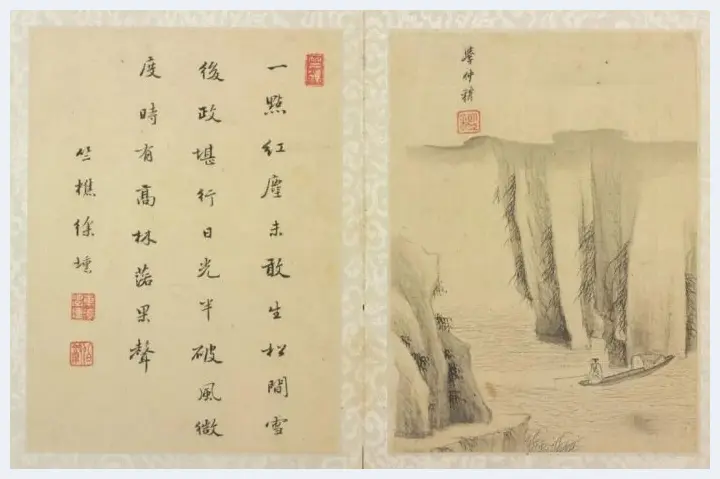 學仲穆
一點紅塵未敢生松間雪
後政堪行日光半破風微
度時有高林落果聲
竺樵徐